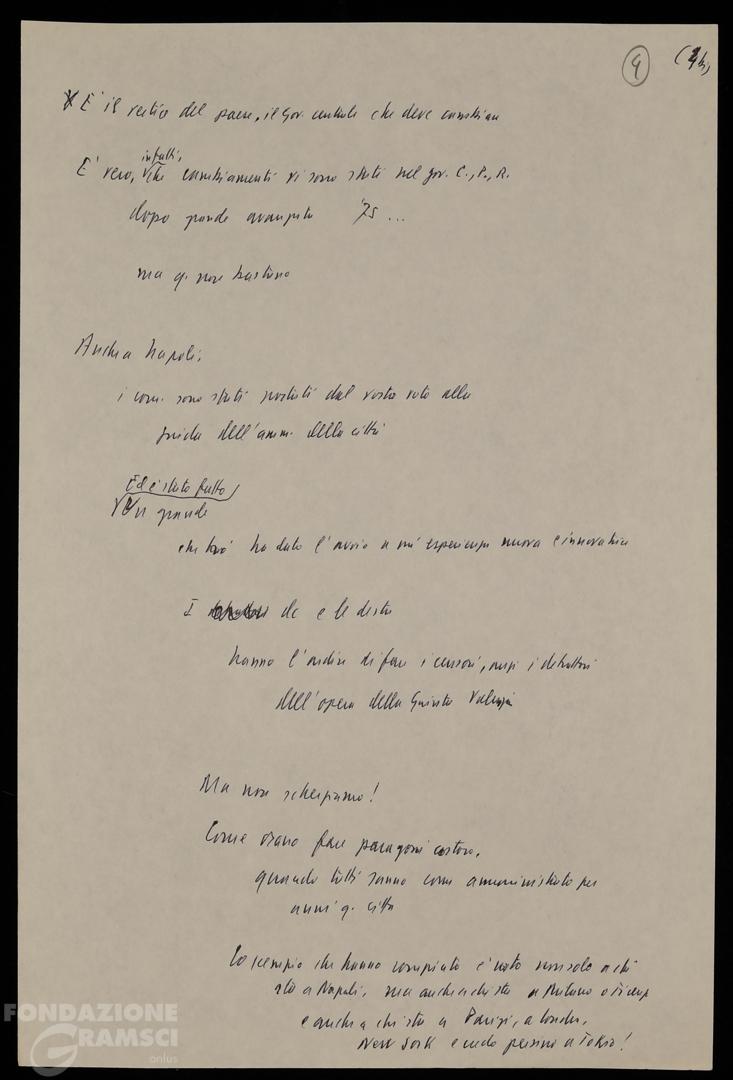 9
È il vertice del paese, il gov. centrale che deve cambiare
È vero, infatti, che cambiamenti vi sono stati nel gov. C., P., R.
dopo grande avanzata '75 ...
ma q. non bastano
Anche a Napoli.
i com. sono stati portati dal vostro voto alla
guida dell'amm. della città
Ed è stato fatto
Un grande
che ha dato l'avvio a un'esperienza nuova e innovatrice
I dc e le destre
hanno l'ardire di fare i censori, anzi i detrattori
dell'opera della Giunta Valenzi
Ma non scherziamo!
Come osano fare paragoni costoro,
quando tutti sanno come amministrato per
anni q. città
Lo scempio che hanno compiuto è noto non solo a chi
sta a Napoli, ma anche a chi sta a Milano o Firenze
e anche a chi sta a Parigi, a Londra,
New York e credo persino a Tokio!
FONDAZIONE
GRAMSCI
onlus